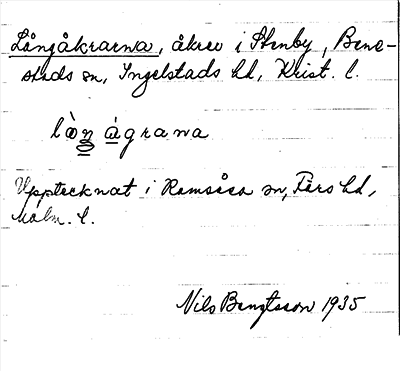 Långåkrarna, åkrar i Stenby, Bene-
stads sn, Ingelstads hd, Krist. l.
lòŋ àgrana
Upptecknat i Ramsåsa sn, Färs hd,
Malm. l.
Nils Bengtsson 1935